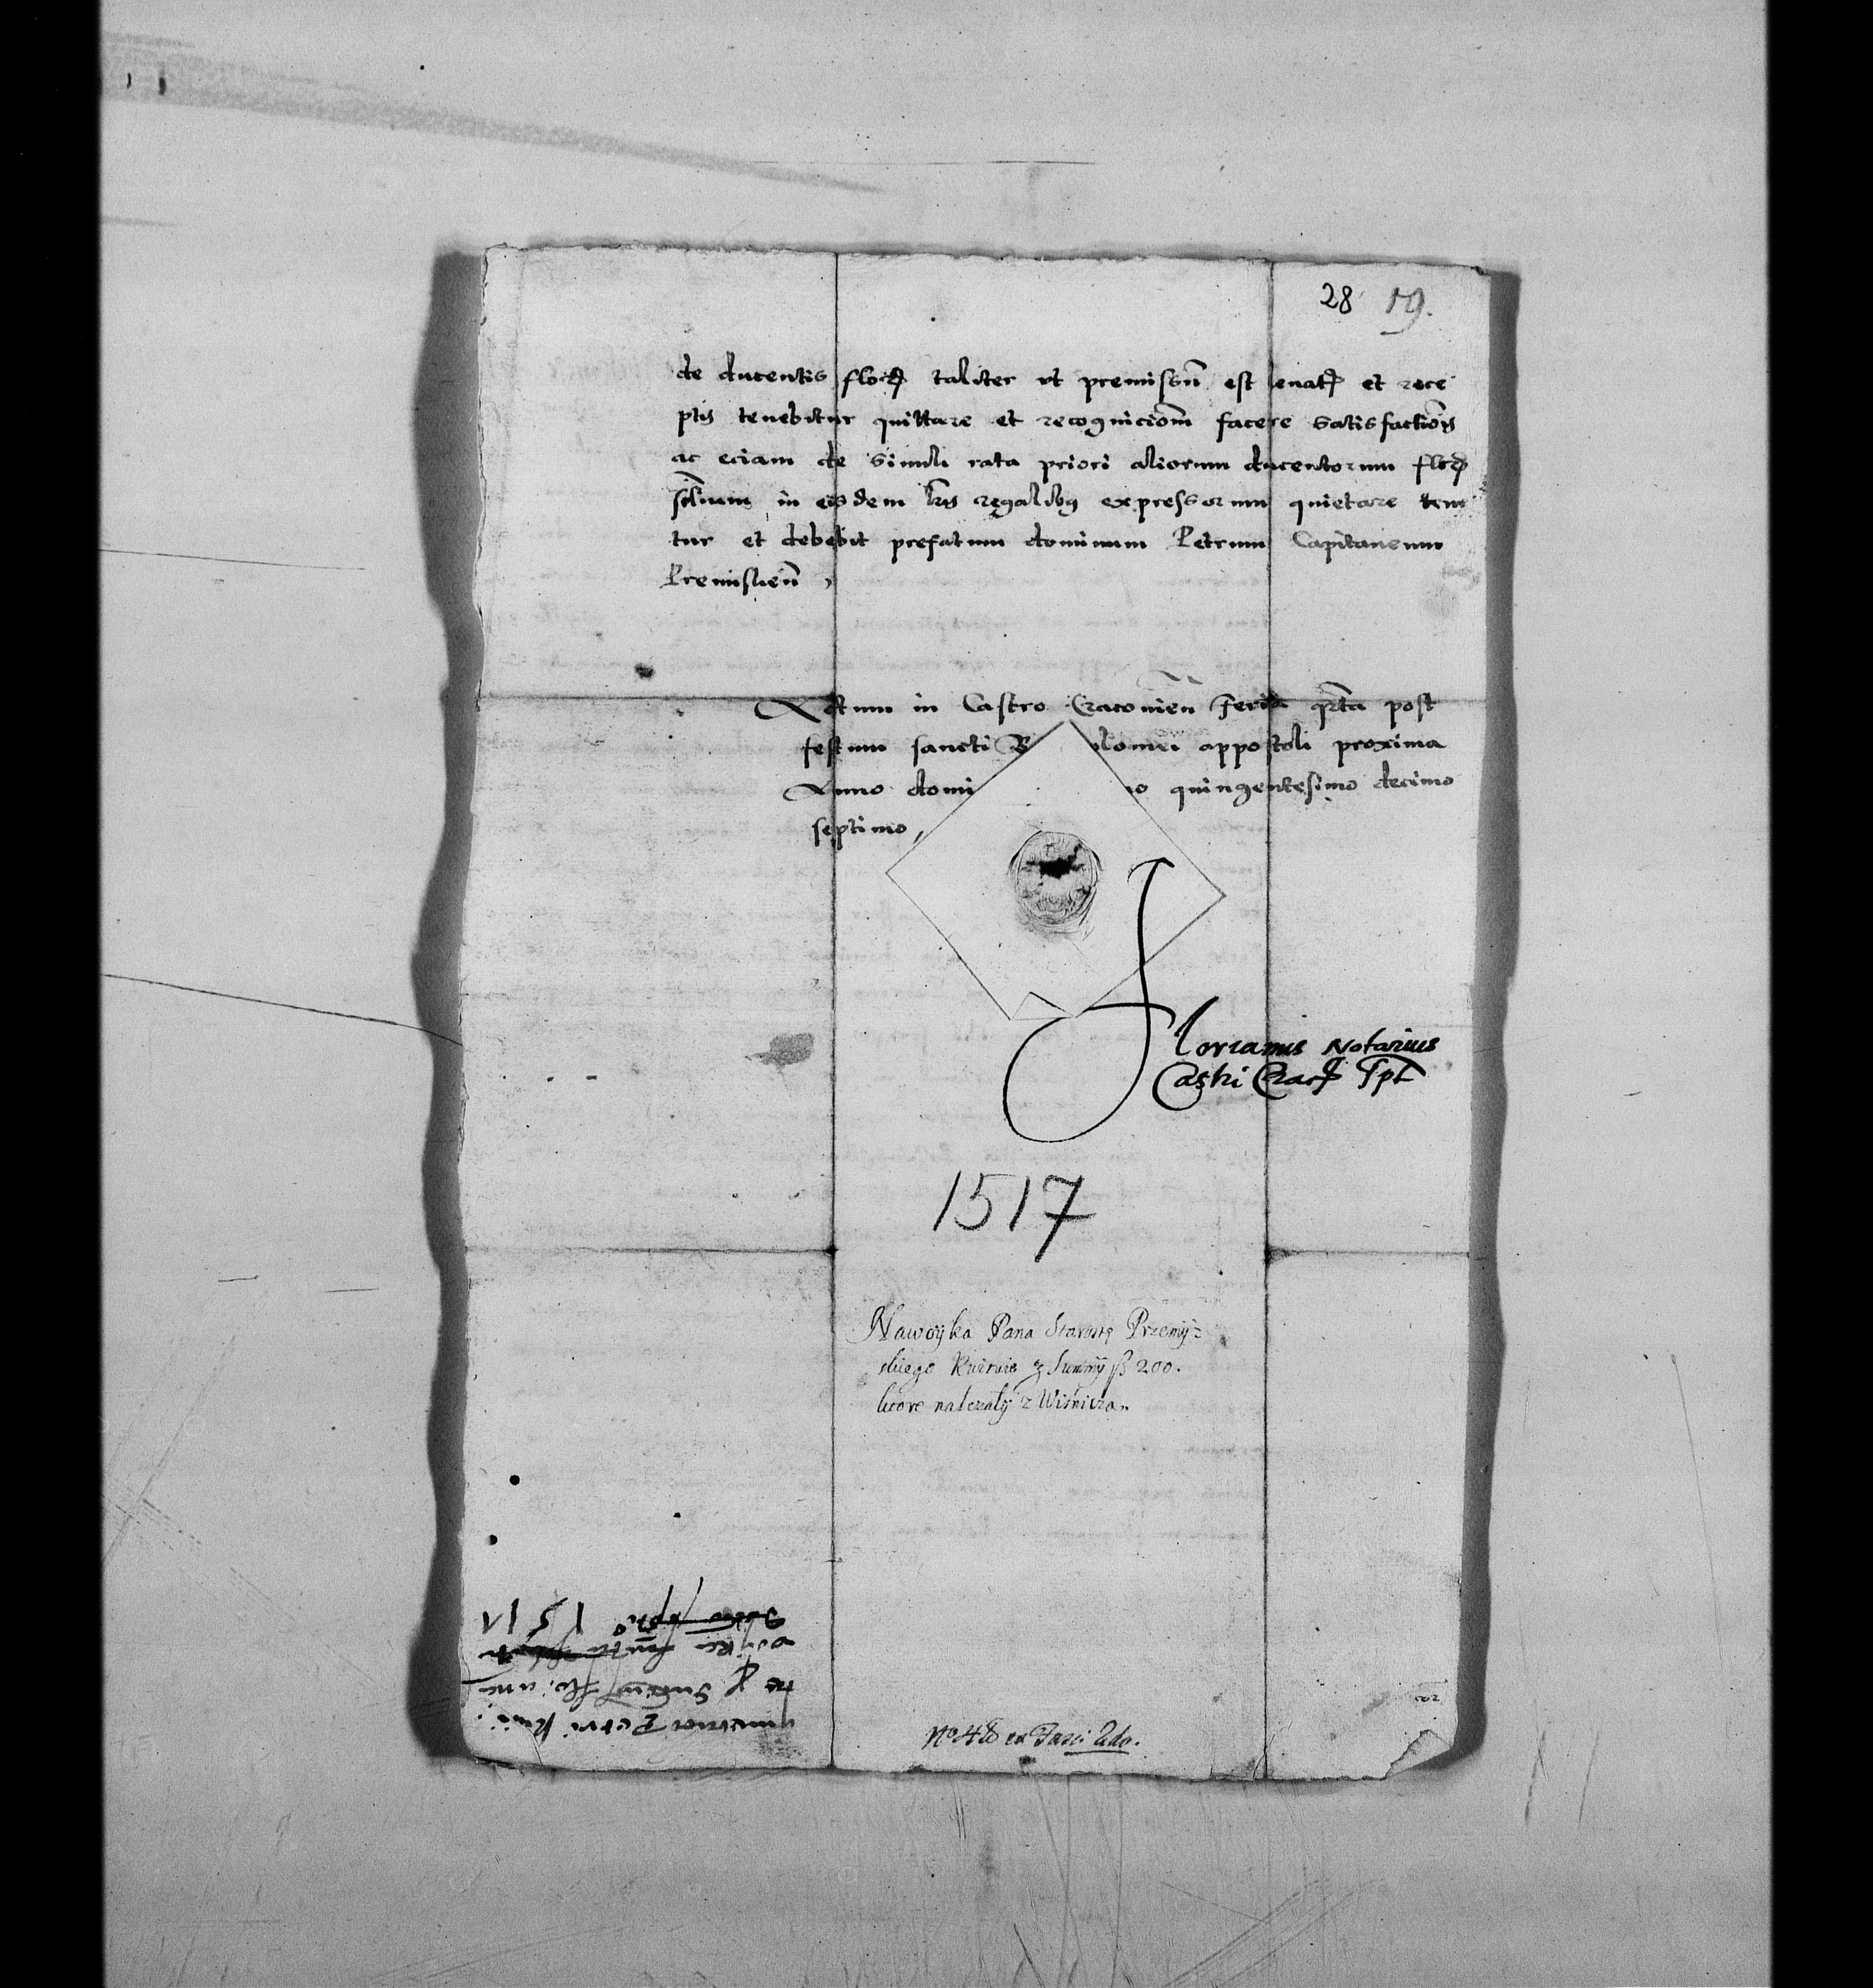 28 19.
de ducentis floꝶ taliter vt premissū est leuatꝶ et rece
ptis tenebitur quittare et recognicioīm facere satisfactiōis
ac eciam de simili rata priori aliorum ducentorum floꝶ
similium in eisdem l̄ris regalibꝰ expressorum quietare tene
tur et debebit prefatum dominum Petrum Capitaneum
Premislieñ ,
Actum in Castro Cracouieñ Feria qrta post
festum sancti B lomei appostoli proxima
Anno domi o quingentesimo decimo
septimo ,
Florianus Notarius
Castri Cracꝶ
1517
Nawoyka Pana Starostę Przemy-
skiego Kwituie z Summy 200.
ktore należały z Wiśnicza.
Petri
1517
No ex Fasci 2do.